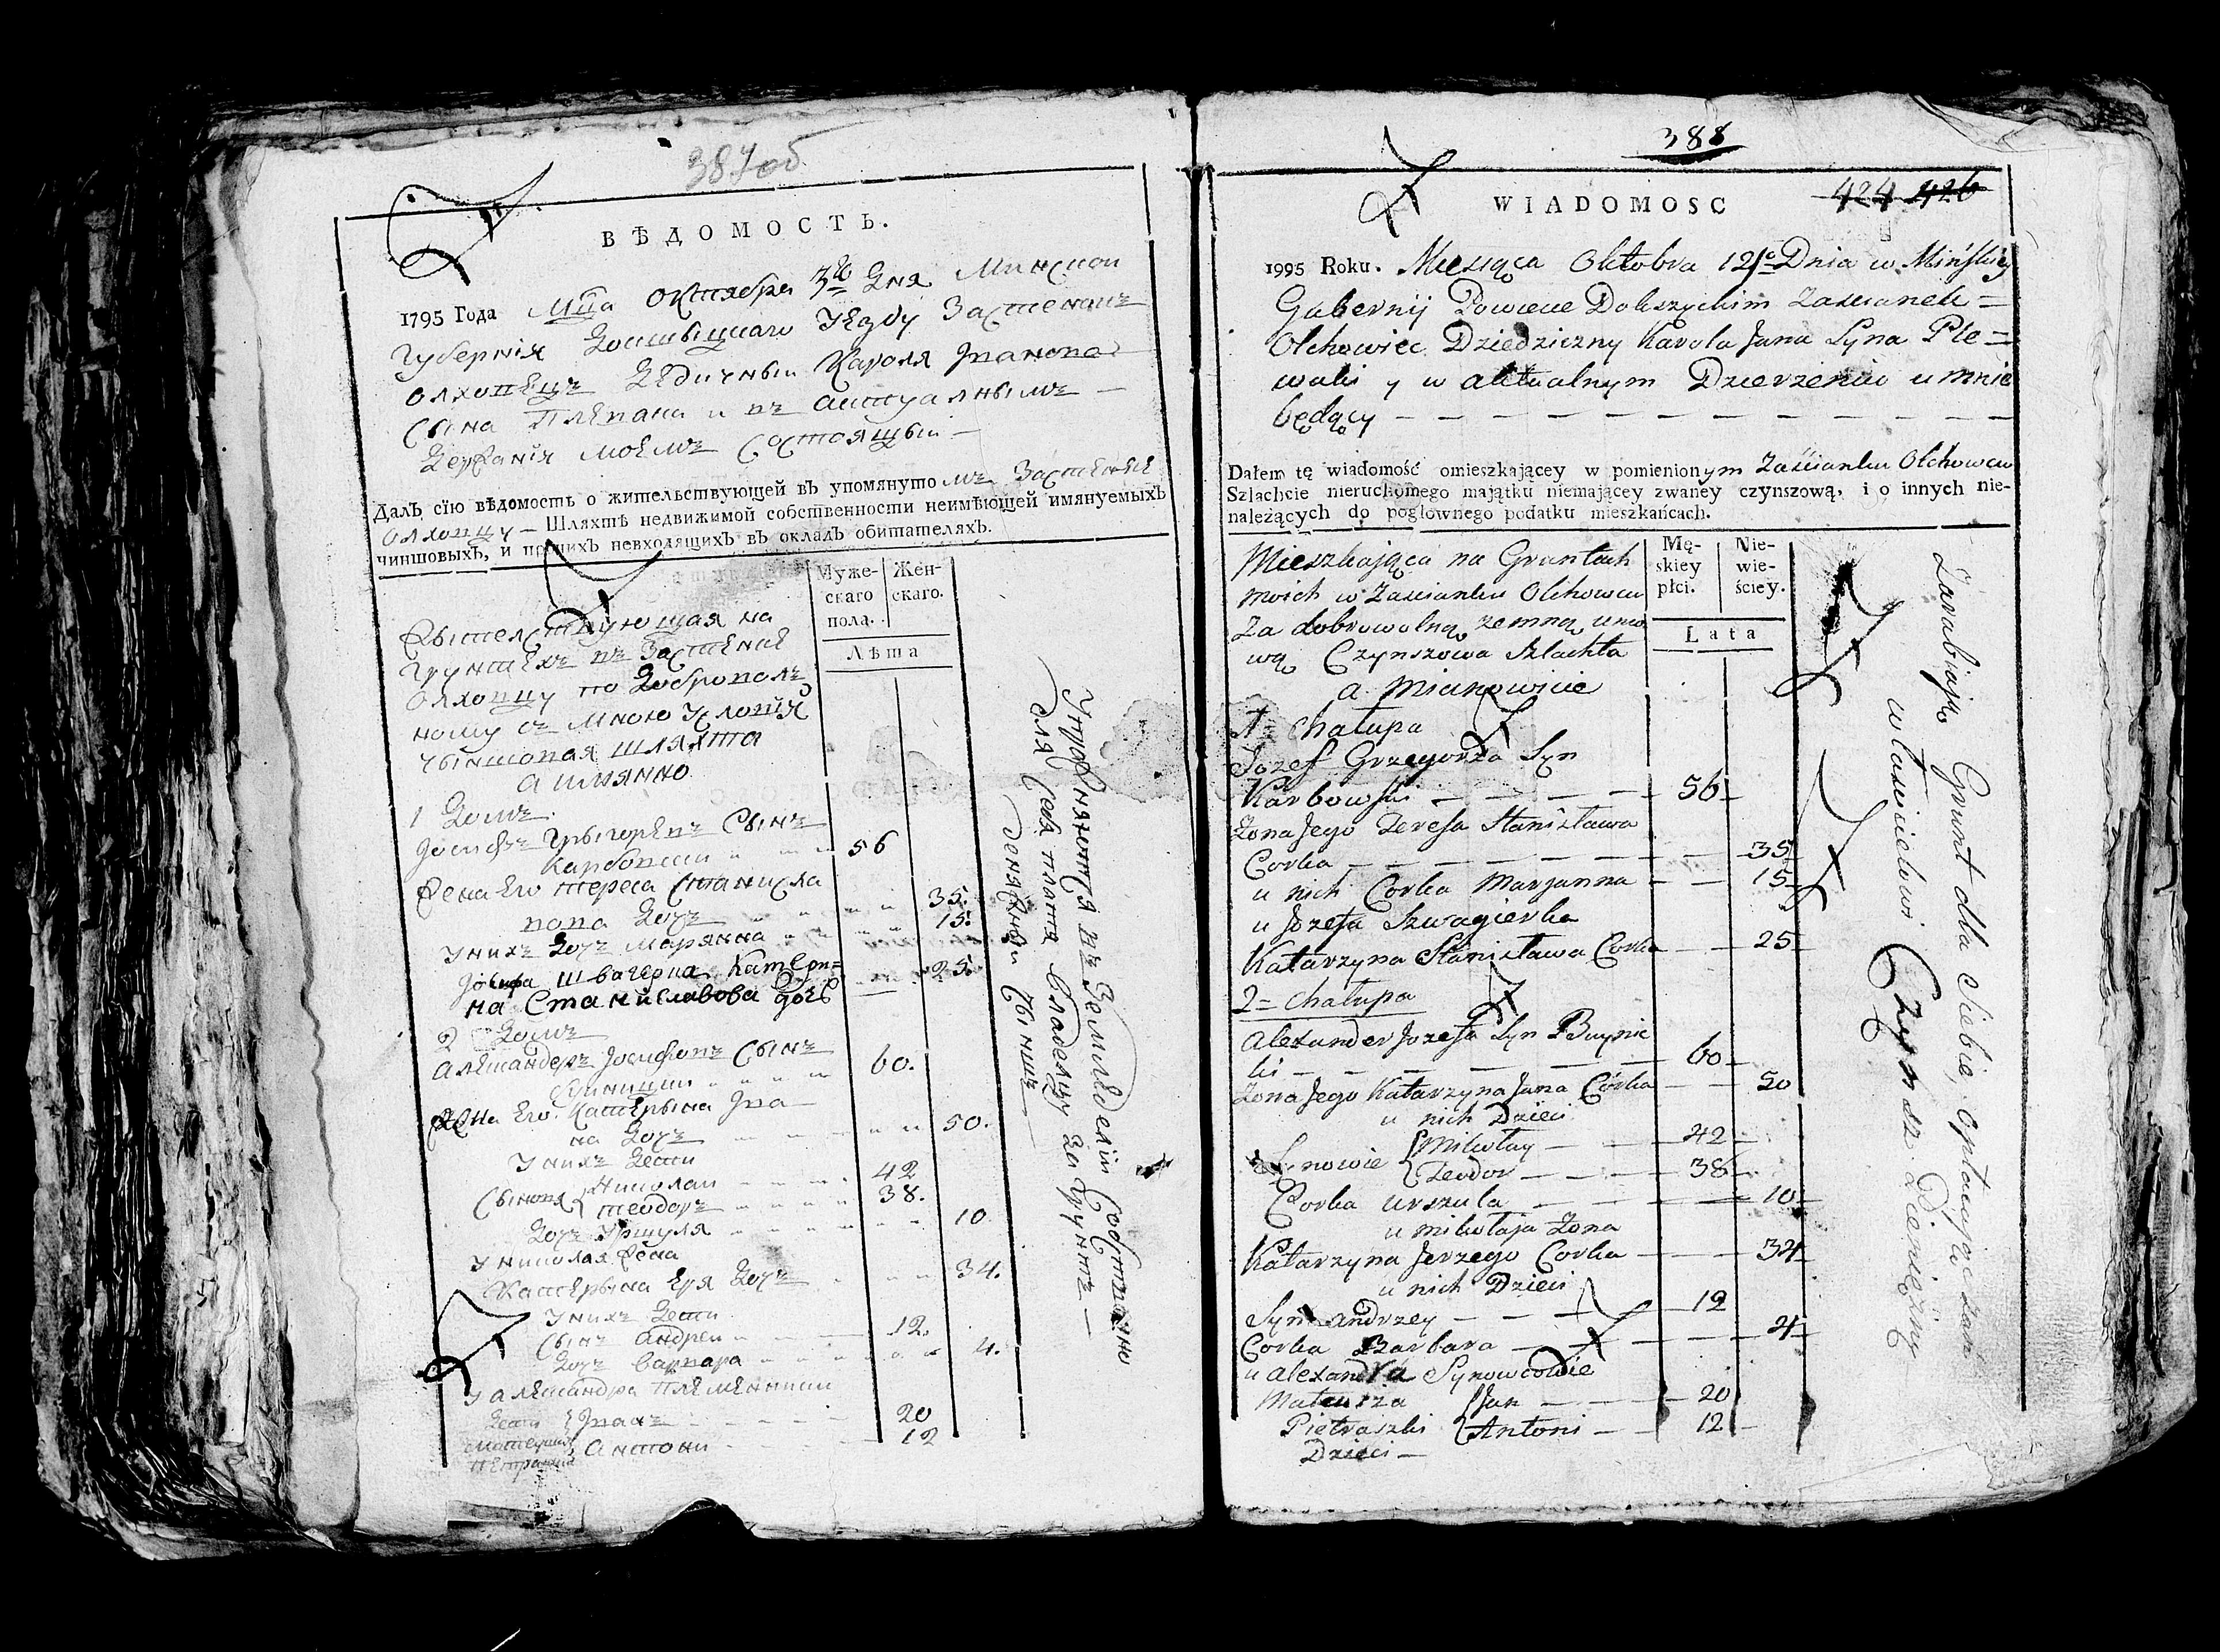 387об
ВѢДОМОСТЬ.
1795 Года Мца Октября Дня Минской
Губернія Докшыцкаго Уезду Застенокъ
Олховецъ Дедичный Кароля Ивановъ
Сына Плеваки и въ актуалнымъ —
Держанія моемъ Состоящый —
Далъ сїю вѣдомость о жительствующей въ упомянутомъ Застенке
Олховцу — Шляхтѣ недвижимой собственности неимѣющей имянуемыхъ
чиншовыхъ, и прочихъ невходящихъ въ окладъ обитателяхъ.
Мужескаго пола. Женскаго.
Лѣта
Жытелствующая на
Грунтехъ въ Застенке
Олховцу по Доброволь
ному съ мною Условія
чыншовая шляхта
а имянно
1 Домъ.
Іосифъ Грыгоревъ Сынъ
Карбовски 56
Жена Его Тереса Станисла
вова Дочъ 35.
У нихъ Дочъ Марянна 15.
Іосифа швагерка Катери=
на Станиславова дочь 25.
2 Домъ
Александеръ Іосифовъ Сынъ
60.
Жена Его Катерына Ива
на Дочъ 50.
У нихъ Дети
Сыновя Николай 42
Теодоръ 38.
Дочъ Уршуля 10
У Николая Жена
Катерына Еря Дочъ 34.
У нихъ Дети
Сынъ Андрей 12.
Дочъ Варвара 4.
У Александра Племенники
Дети Иванъ 20
Матеуша Антони 12
Петрашки
Упужняются въ Земледеліи Собственно
для себя платя владелцу за Грунтъ —
Денежный Чыншъ —
388
WIADOMOSC 424 426
1995 Roku. Miesiąca Oktobra 12go Dnia w Mińskiej
Gubernij Powiecie Dokszyckim Zascianek =
Olchowiec Dziedziczny Karola Jana Syna Ple=
waki y w aktualnym Dzierzeniu u mnie
będący — — — — —
Dałem tę wiadomość omieszkającey w pomienionym Zaścianku Olchowcu
Szlachcie nieruchomego majątku niemającey zwaney czynszową, i o innych nie-
należących do pogłownego podatku mieszkańcach.
Mę-skiey płci. Nie-wie-ściey.
Lata
Mieszkająca na Gruntach
moich w Zascianku Olchowcu
Za dobrowolną zemną umo
wą Czynszowa Szlachta
a mianowicie
1= Chałupa
Jozef Grzegorza Syn
Karbowski — 56
Zona Jego Teresa Stanisława
Corka — 35
u nich Corka Marjanna — 15
u Jozefa Szwagierka
Katarzyna Stanisława Corka — 25
2= Chałupa
Alexander Jozefa Syn Buynic
ki — 60
Zona Jego Katarzyna Jana Córka — 50
u nich Dzieci
Synowie Mikołay — 42
Teodor — 38
Corka Urszula — 10
u Mikołaja Zona
Katarzyna Jerzego Corka — 34
u nich Dzieci
Syn Andrzey — 12
Corka Barbara — 4
u Alexandra Synowcowie
Mateusza Jan — 20
Pietraszki Antoni — 12
Dzieci —
Zarabiając Grunt dla siebie, opłacając zań
właścicielowi Czynsz Pieniężny